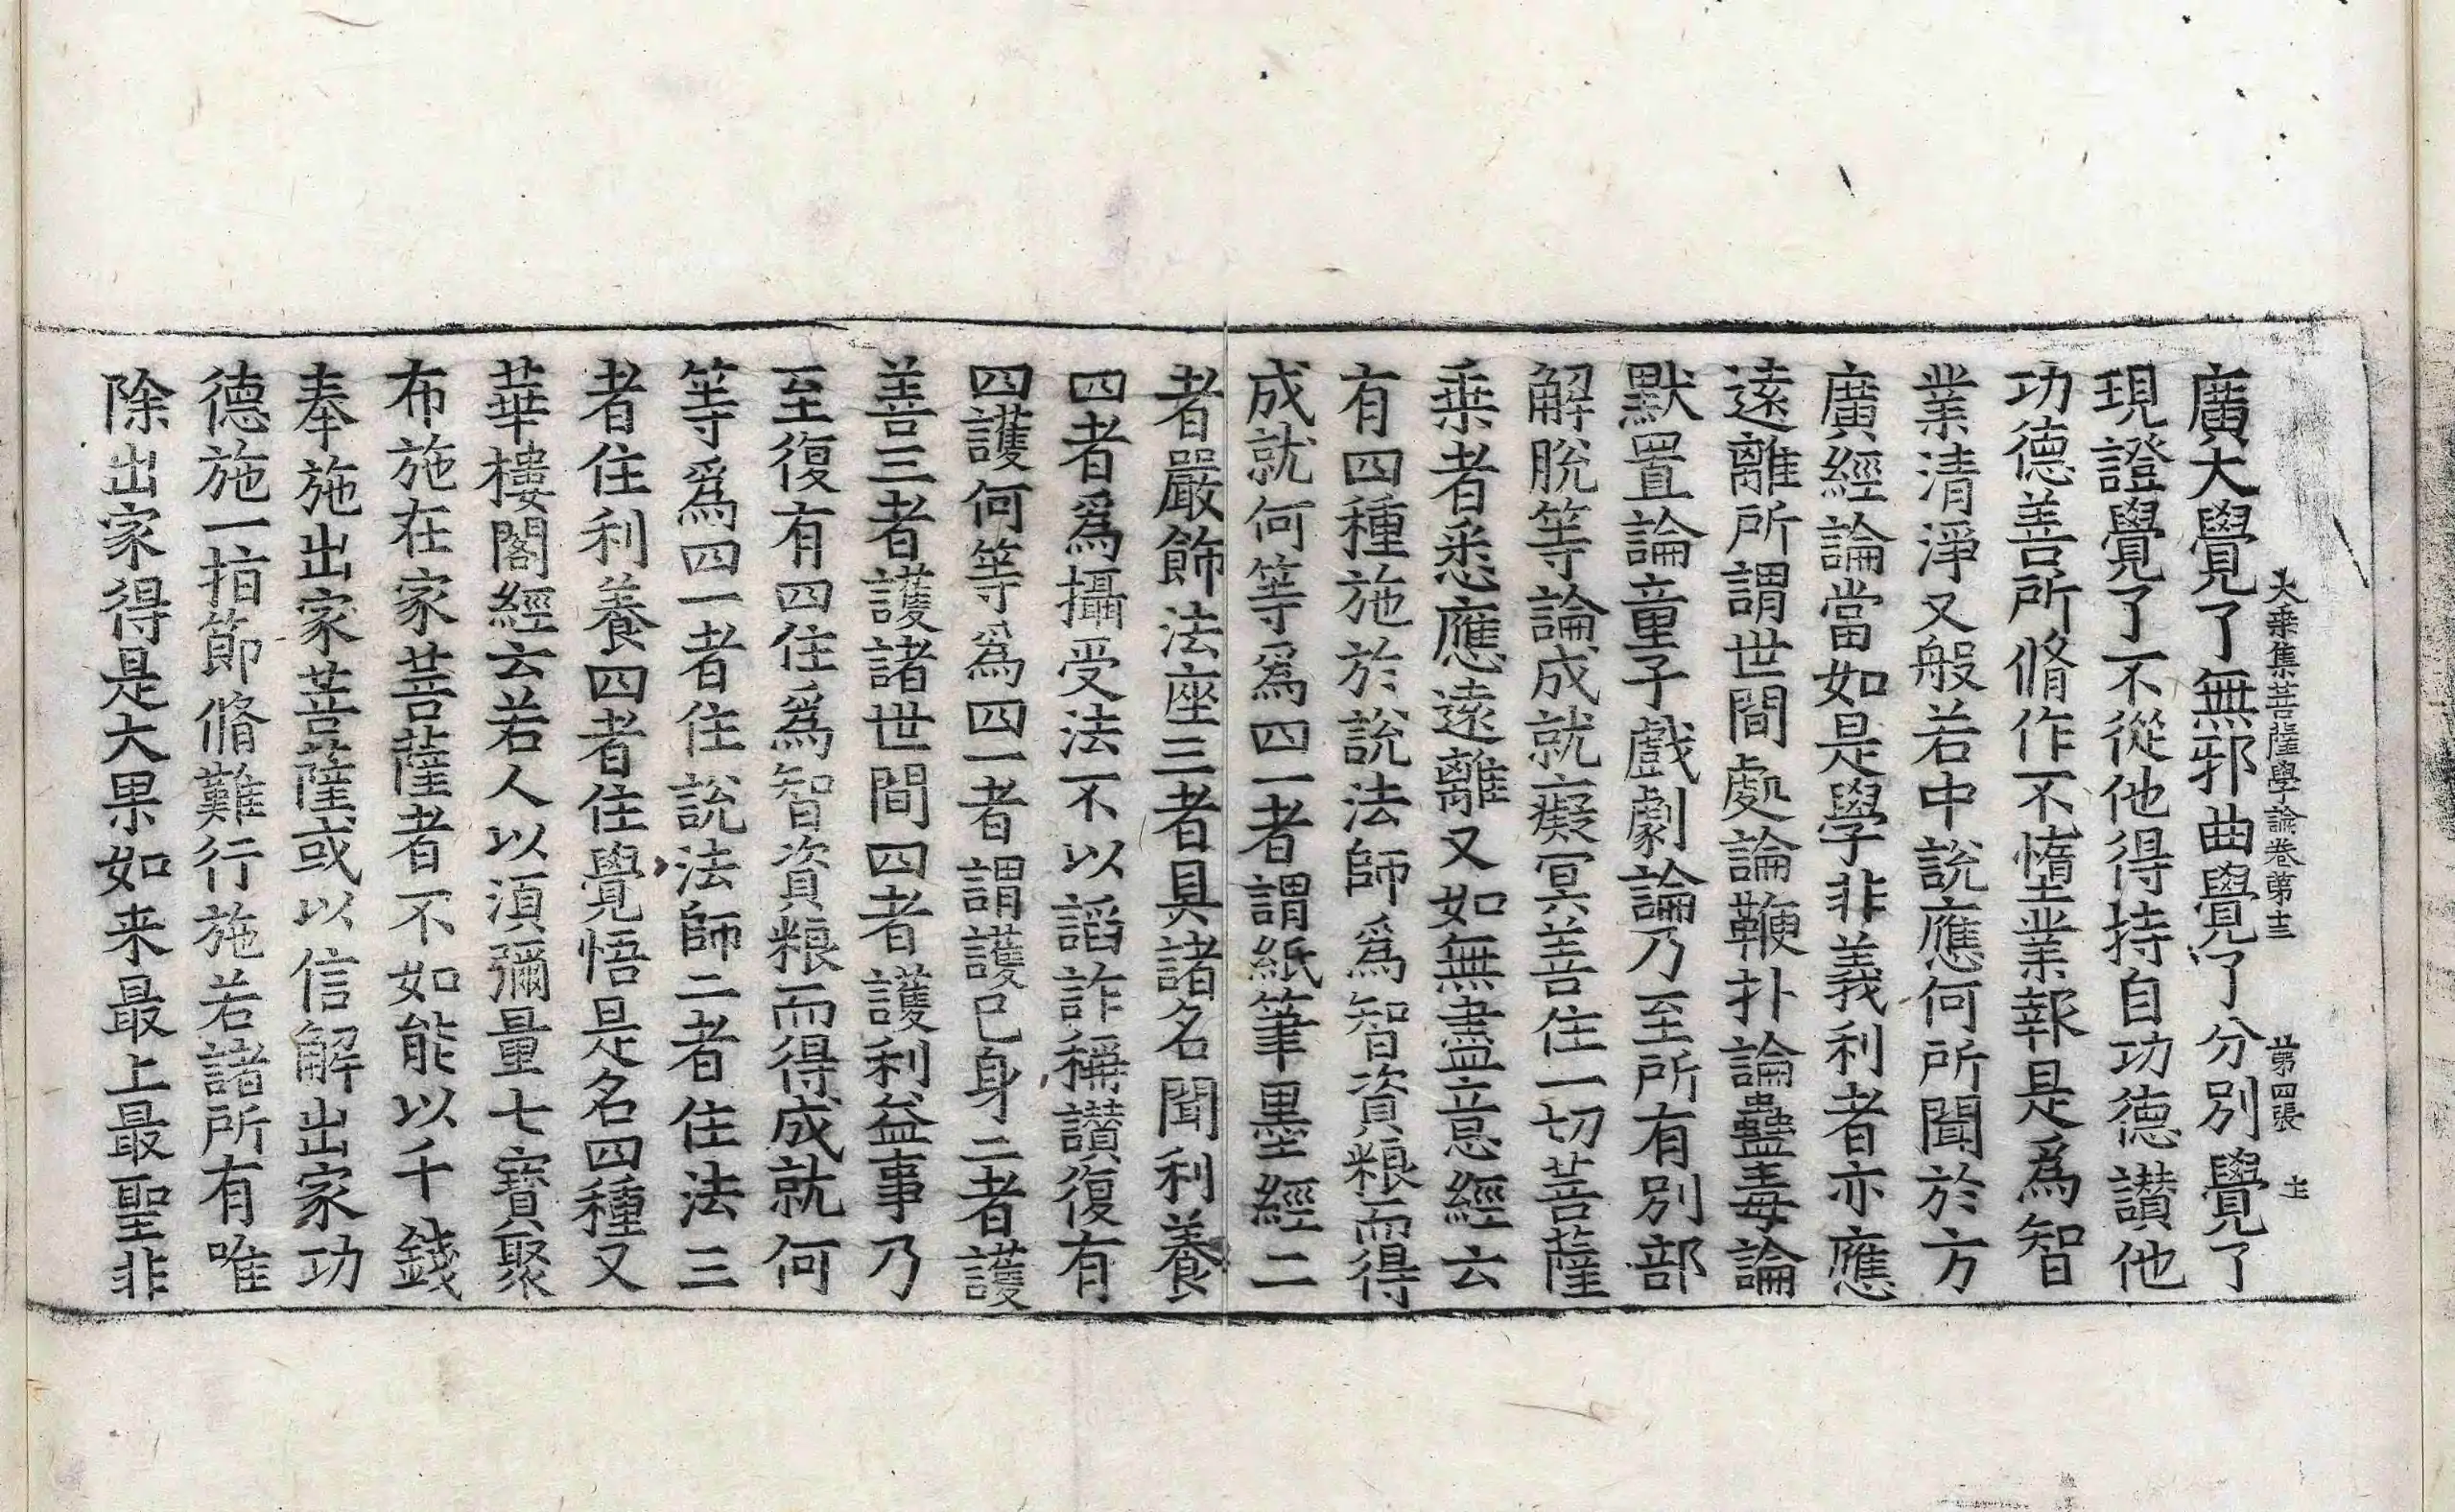 大乗集菩薩學論卷第十三 第四張 土
廣大覺了無邪曲覺了分別覺了
現證覺了不從他得持自功德讃他
功德善所脩作不惰業報是爲智
業清淨又般若中說應何所聞於方
廣經論當如是學非義利者亦應
遠離所謂世間處論鞭扑論蠱毒論
默置論童子戲劇論乃至所有別部
解脫等論成就癡冥善住一切菩薩
乗者悉應遠離又如無盡意經云
有四種施於說法師爲智資粮而得
成就何等爲四一者謂紙筆墨經二
者嚴飾法座三者具諸名聞利養
四者爲攝受法不以謟詐稱讃復有
四護何等爲四一者謂護己身二者護
善三者護諸世間四者護利益事乃
至復有四住爲智資粮而得成就何
等爲四一者住說法師二者住法三
者住利養四者住覺悟是名四種又
華樓閣經云若人以湏彌量七寶聚
布施在家菩薩者不如能以千錢
奉施出家菩薩或以信解出家功
德施一指節脩難行施若諸所有唯
除出家得是大果如来最上最聖非